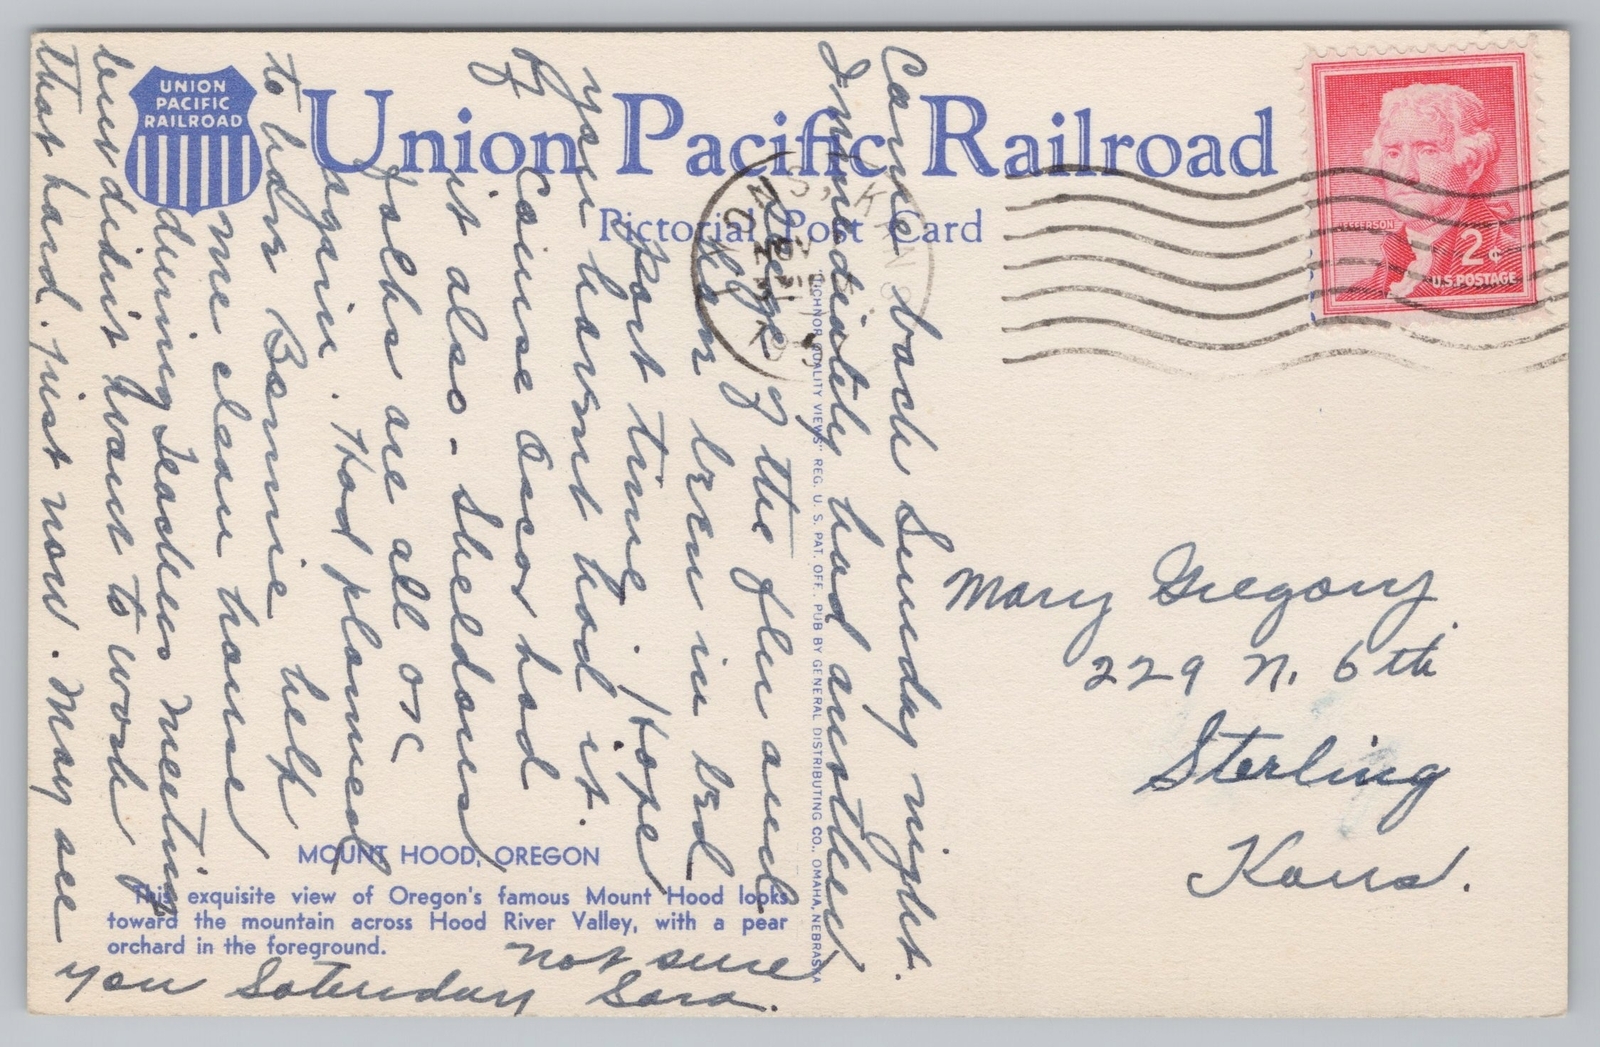 UNION
PACIFIC
RAILROAD
Union Pacific Railroad
Pictorial Post Card
JEFFERSON
2¢
U.S. POSTAGE
Came back Sunday night.
Immediately had another
siege of the flu and
have been in bed
part time. I hope
you havent had it.
Of course Oscar had
it also - Sheldons
folks are all ok
again. Had planned
to hav Bernie help
me clean house
during Teachers meeting
but didnt want to work
that hard just now. May see
you Saturday not sure
Sara.
Mary Gregory
229 N. 6th
Sterling
Kans.
"LICHNOR QUALITY VIEWS" REG. U. S. PAT. OFF. PUB BY GENERAL DISTRIBUTING CO., OMAHA, NEBRASKA
MOUNT HOOD, OREGON
This exquisite view of Oregon's famous Mount Hood looks
toward the mountain across Hood River Valley, with a pear
orchard in the foreground.